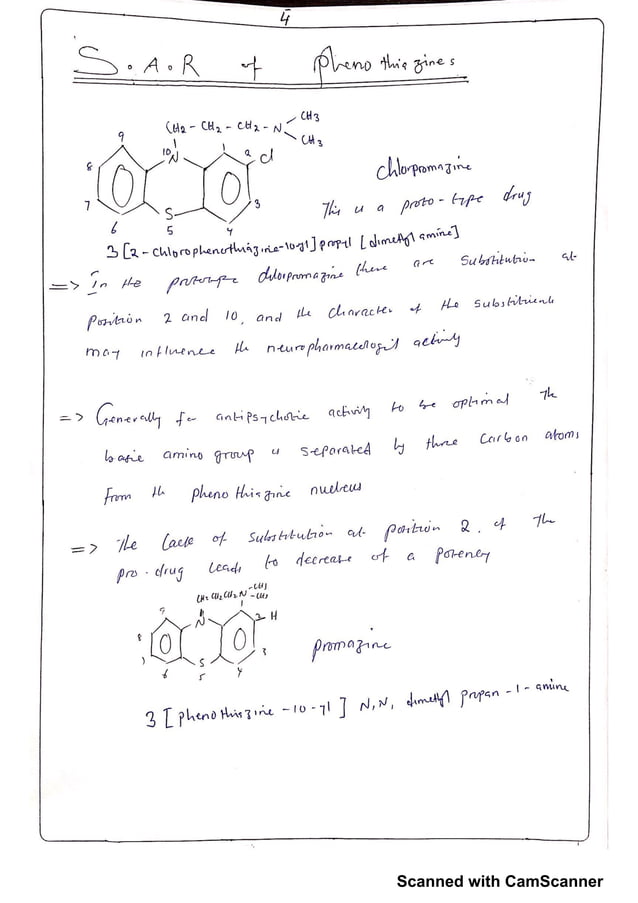 4
S.A.R of Phenothiazines
CH2 - CH2 - CH2 - N
CH3
CH3
9
10
N
1
2
Cl
8
7
3
S
6
5
4
chlorpromazine
This is a proto-type drug
3[2-chlorophenothiazine-10-yl]propyl [dimethyl amine]
=> In the prototype chlorpromazine there are substitution at
position 2 and 10, and the character of the substituent
may influence the neuropharmacologil activity
=> Generally for antipsychotic activity to be optimal The
basic amino group is separated by three carbon atoms
From the phenothiazine nucleus
=> The lack of substitution at position 2. of The
pro-drug leads to decrease of a potency
CH2 CH2 CH2 N
-CH3
-CH3
9
N
1
2
H
8
3
S
6
5
4
promazine
3 [phenothiazine -10-yl] N,N, dimethyl propan-1-amine
Scanned with CamScanner